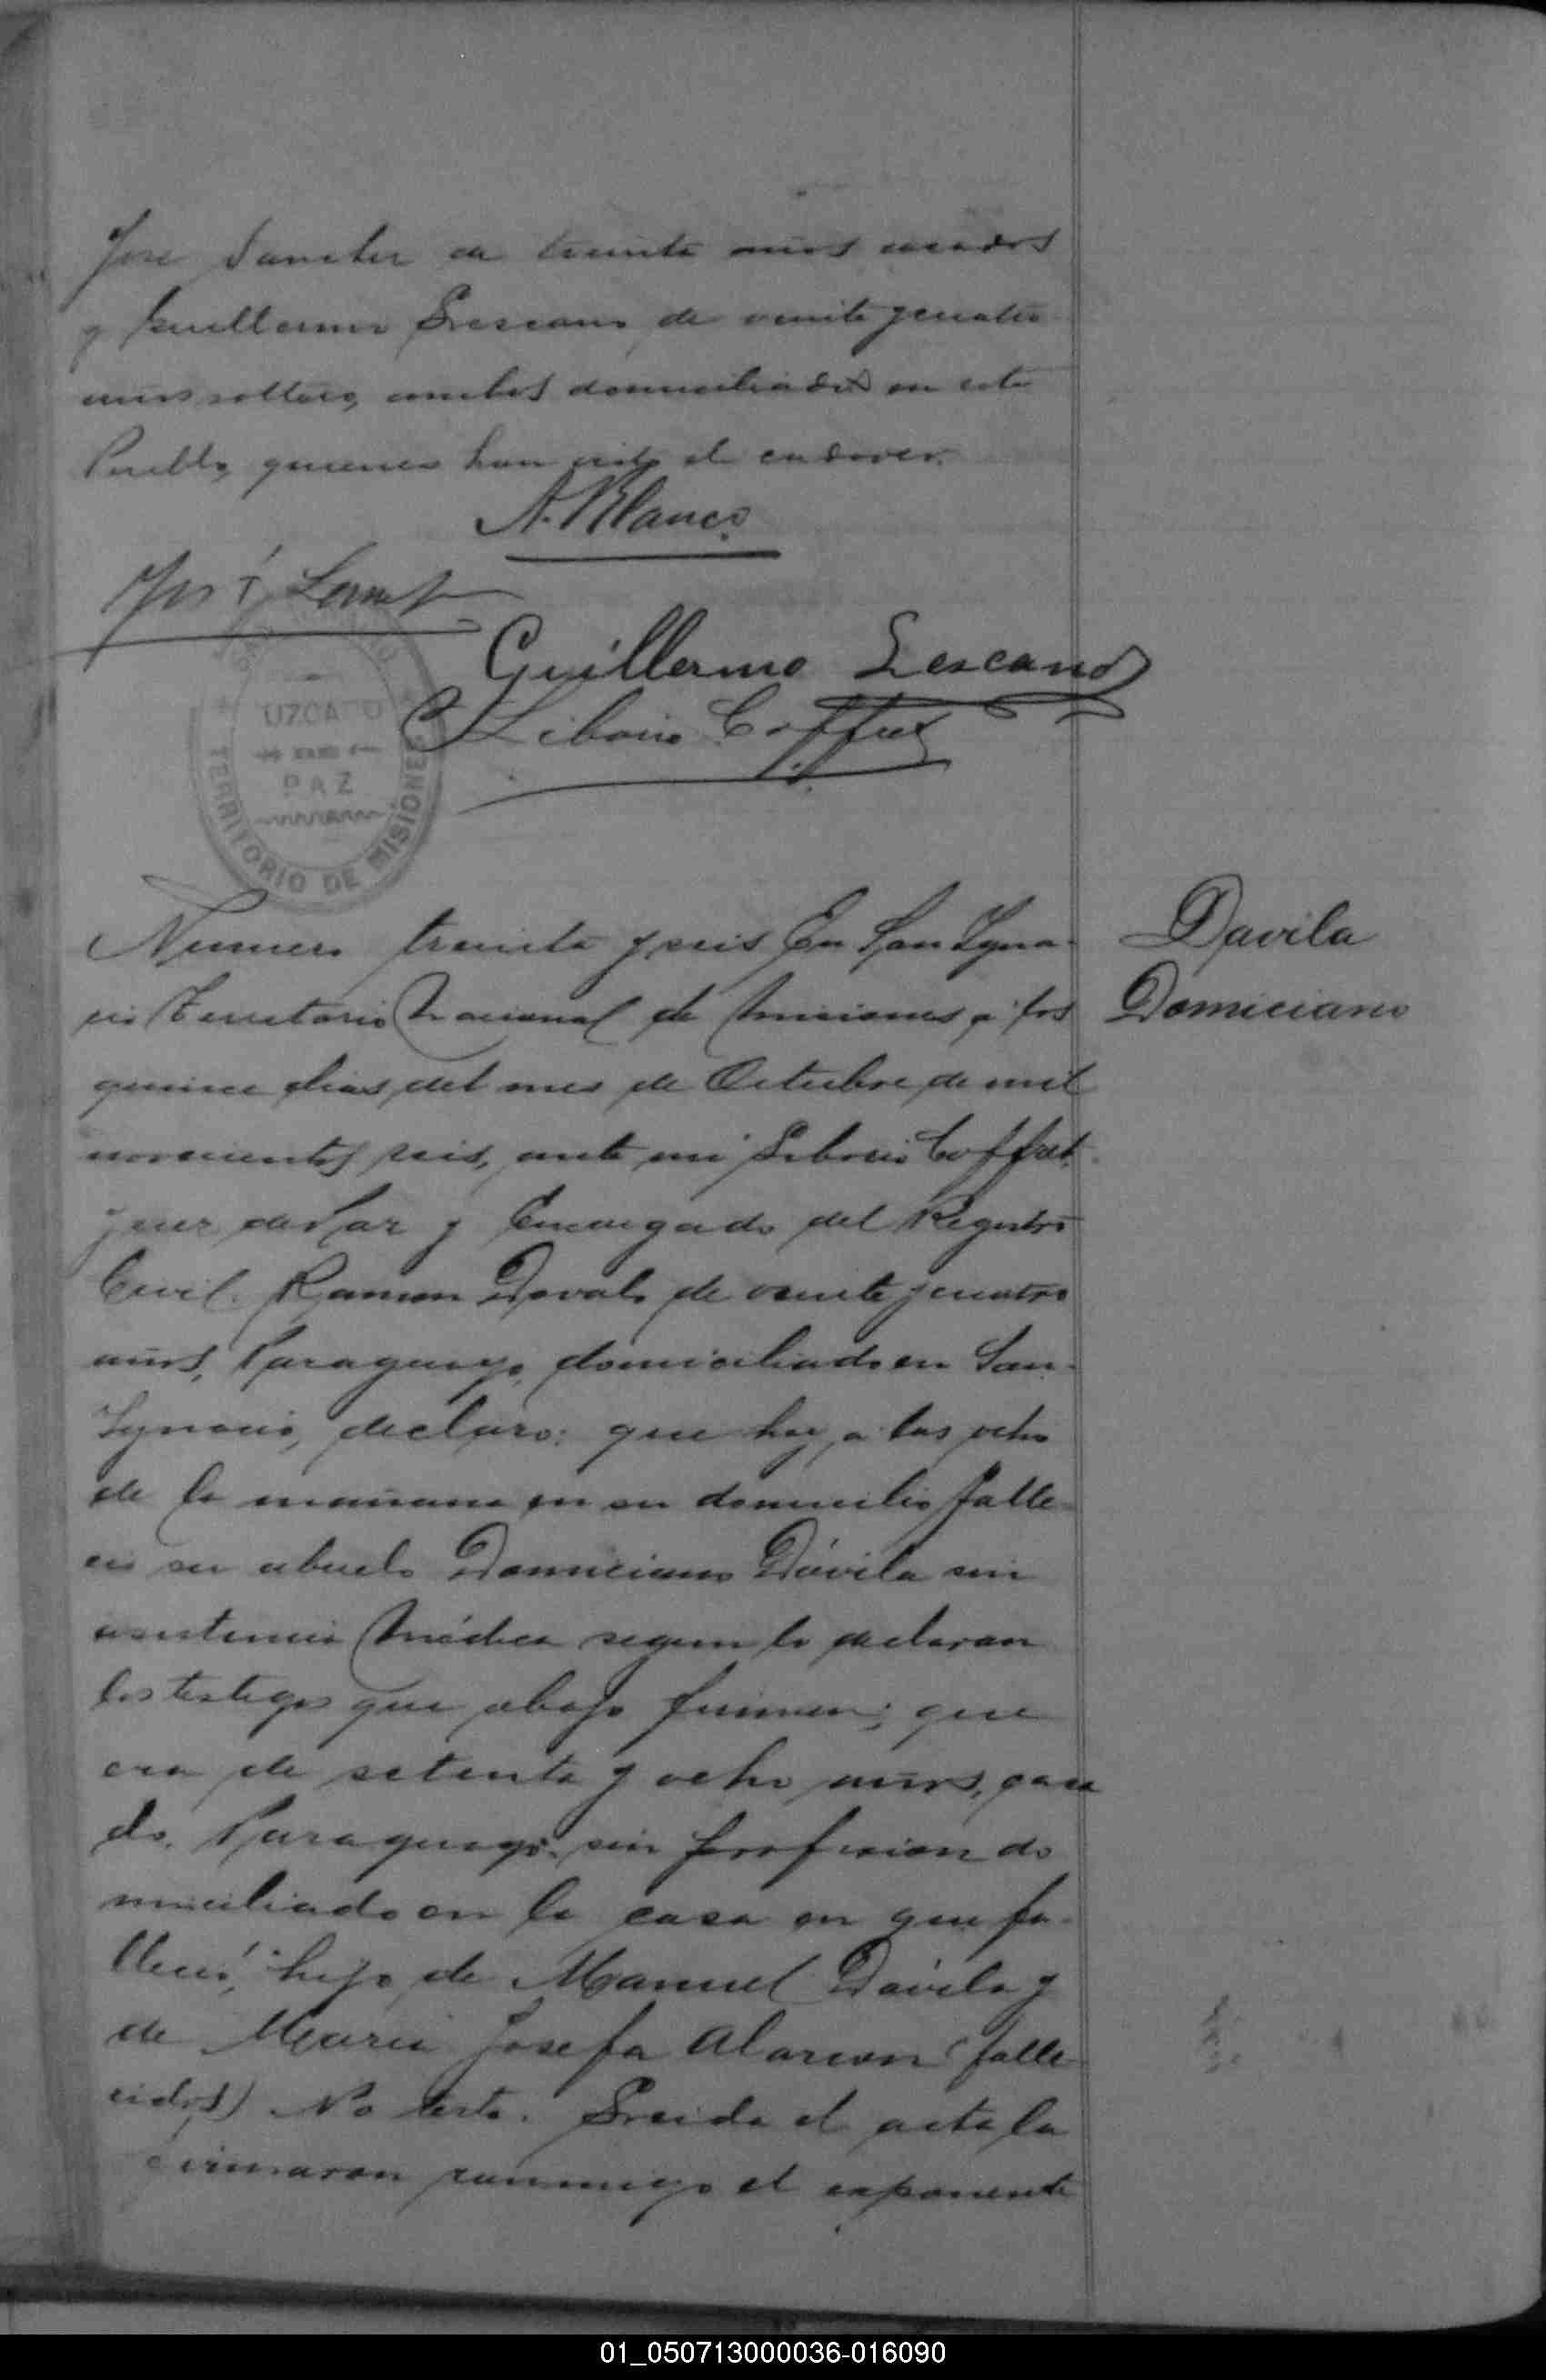 Jose Sanchez de treinta años casados
y Guillermo Lescano de veinte y cuatro
años soltero, ambos domiciliados en este
Pueblo, quienes han visto el cadaver.
A. Blanco
José
Guillermo Lescano
Liborio Coffret
JUZGADO
PAZ
TERRITORIO DE MISIONES
Davila
Domiciano
Numero treinta y seis En San Igna-
cio Territorio Nacional de Misiones, a los
quince dias del mes de Octubre de mil
novecientos seis, ante mi Liborio Coffret
Juez de Paz y Encargado del Registro
Civil. Ramon Dovalo de veinte y cuatro
años, Paraguayo, domiciliado en San
Ignacio, declaro: que hoy a las ocho
de la mañana en su domicilio falle-
cio su abuelo Domiciano Dávila sin
asistencia Médica segun lo declaran
los testigos que abajo firman; que
era de setenta y ocho años, casa
do, Paraguayo, sin profesion do
miciliado en la casa en que fa-
lleció, hijo de Manuel Dávila y
de Maria Josefa Alarcon (falle-
cidos) No testo. Leida el acta la
firmaron conmigo el exponente
01_050713000036-016090